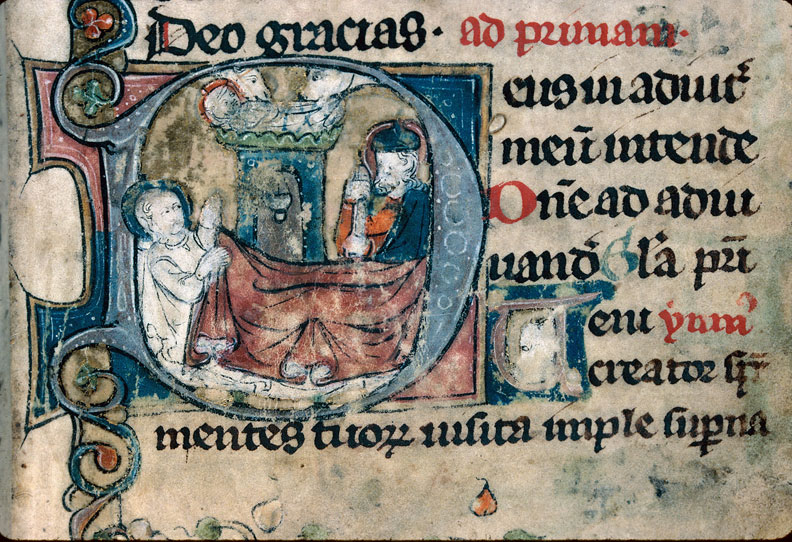 Deo gracias. ad primam.
eus in adiut̄
meū intende
Dn̄e ad adiu
uand̄ Gl̄a pr̄i
Ueni ymn᷒
creator sp̄s
mentes tuoꝝ uisita imple suꝑna